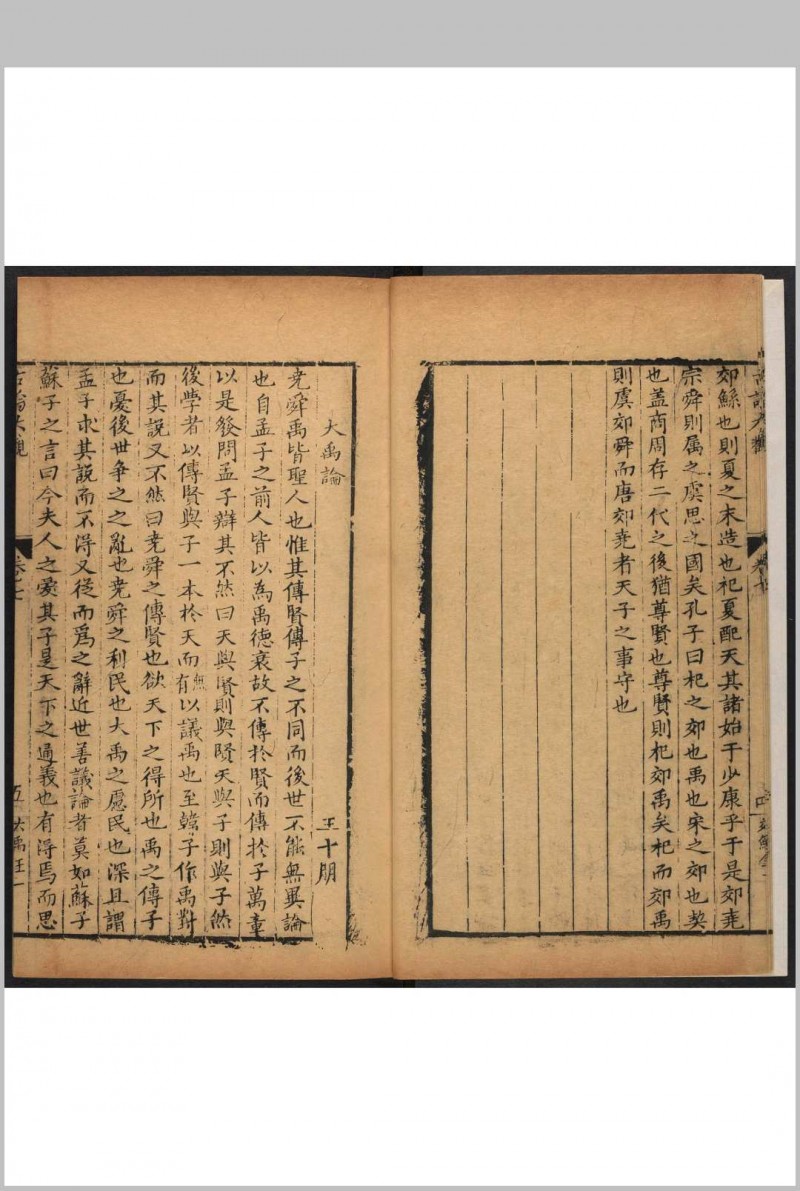 郊鯀也則夏之末造也祀夏配天其諸始于少康乎于是郊堯
宗舜則属之虞思之國矣孔子曰杞之郊也禹也宋之郊也契
也盖商周存二代之後猶尊賢也尊賢則杞郊禹矣杞而郊禹
則虞郊舜而唐郊堯者天子之事守也
大禹論
王十朋
堯舜禹皆聖人也惟其傳賢傳子之不同而後世不能無異論
也自孟子之前人皆以為禹德衰故不傳於賢而傳於子萬章
以是發問孟子辯其不然曰天與賢則與賢天與子則與子然
後學者以傳賢與子一本於天而有無以議禹也至韓子作禹對
而其說又不然曰堯舜之傳賢也欲天下之得所也禹之傳子
也憂後世爭之之亂也堯舜之利民也大禹之慮民也深且謂
孟子求其說而不得又從而爲之辭近世善議論者莫如蘇子
蘇子之言曰今夫人之愛其子是天下之通義也有得焉而思
卷之七
五